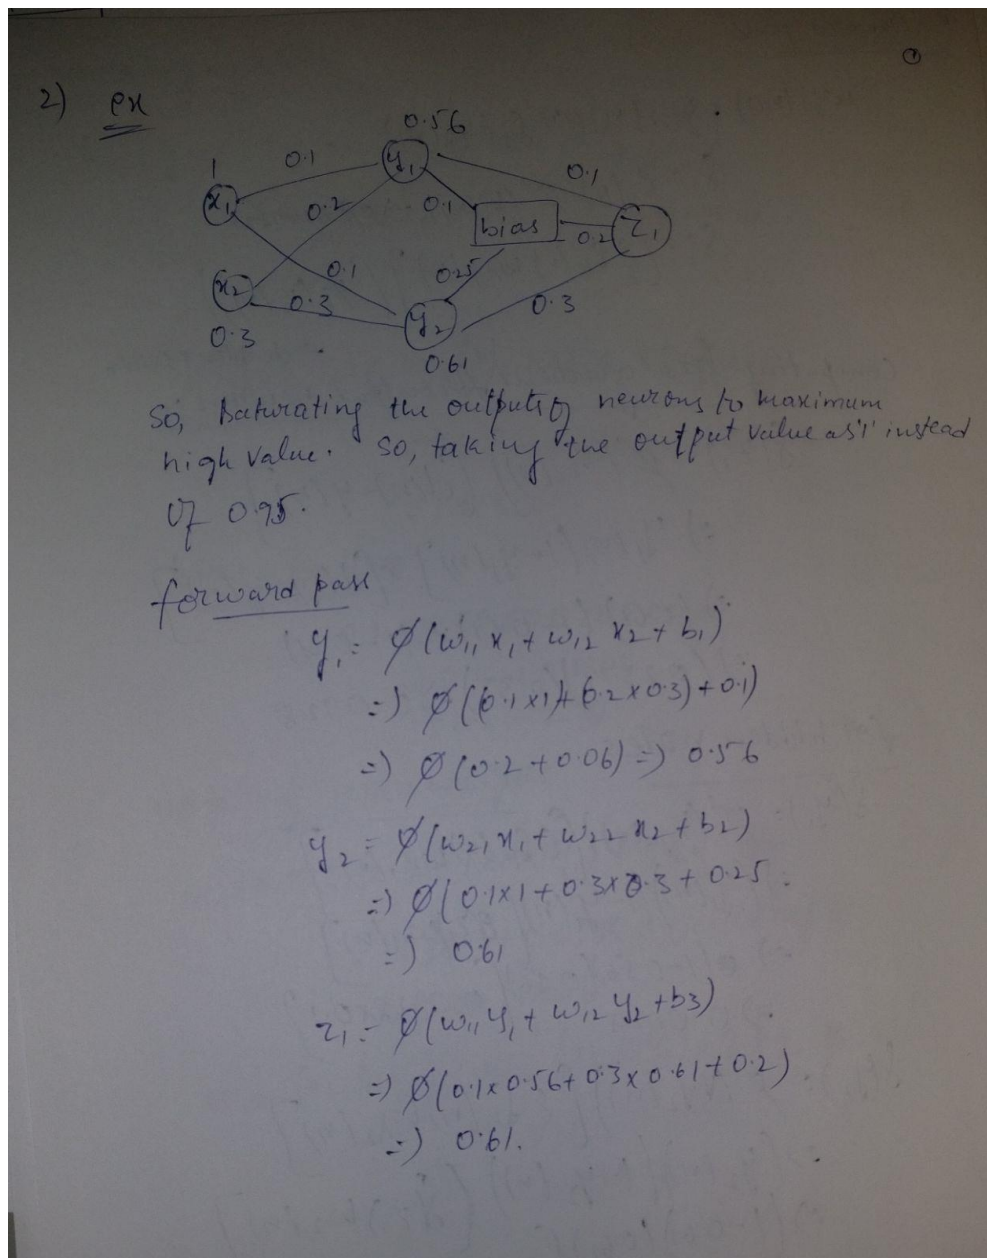 ①
2) ex
0.56
1 0.1 y₁ 0.1
x₁ 0.2 0.1 bias 0.2 z₁
x₂ 0.1 0.25
0.3 0.3
0.3 y₂
0.61
So, saturating the outputs of neurons to maximum
high value. So, taking the output value as '1' instead
of 0.95.
forward pass
y₁ = φ(w₁₁ x₁ + w₁₂ x₂ + b₁)
=) φ((0.1x1)+(0.2x0.3)+0.1)
=) φ(0.2+0.06) =) 0.56
y₂ = φ(w₂₁x₁ + w₂₂ x₂ + b₂)
=) φ(0.1x1+0.3x0.3+0.25
=) 0.61
z₁ = φ(w₁₁y₁ + w₁₂ y₂ + b3)
=) φ(0.1x0.56+0.3x0.61+0.2)
=) 0.61.